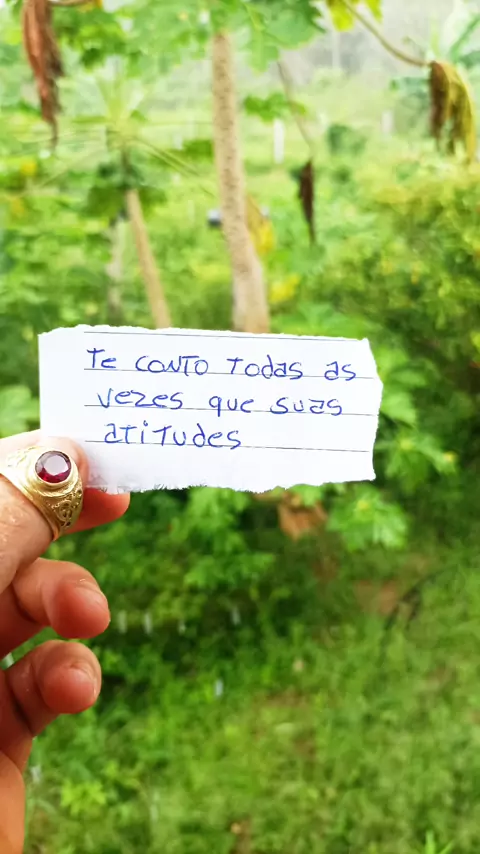 Te conto todas as
vezes que suas
atitudes